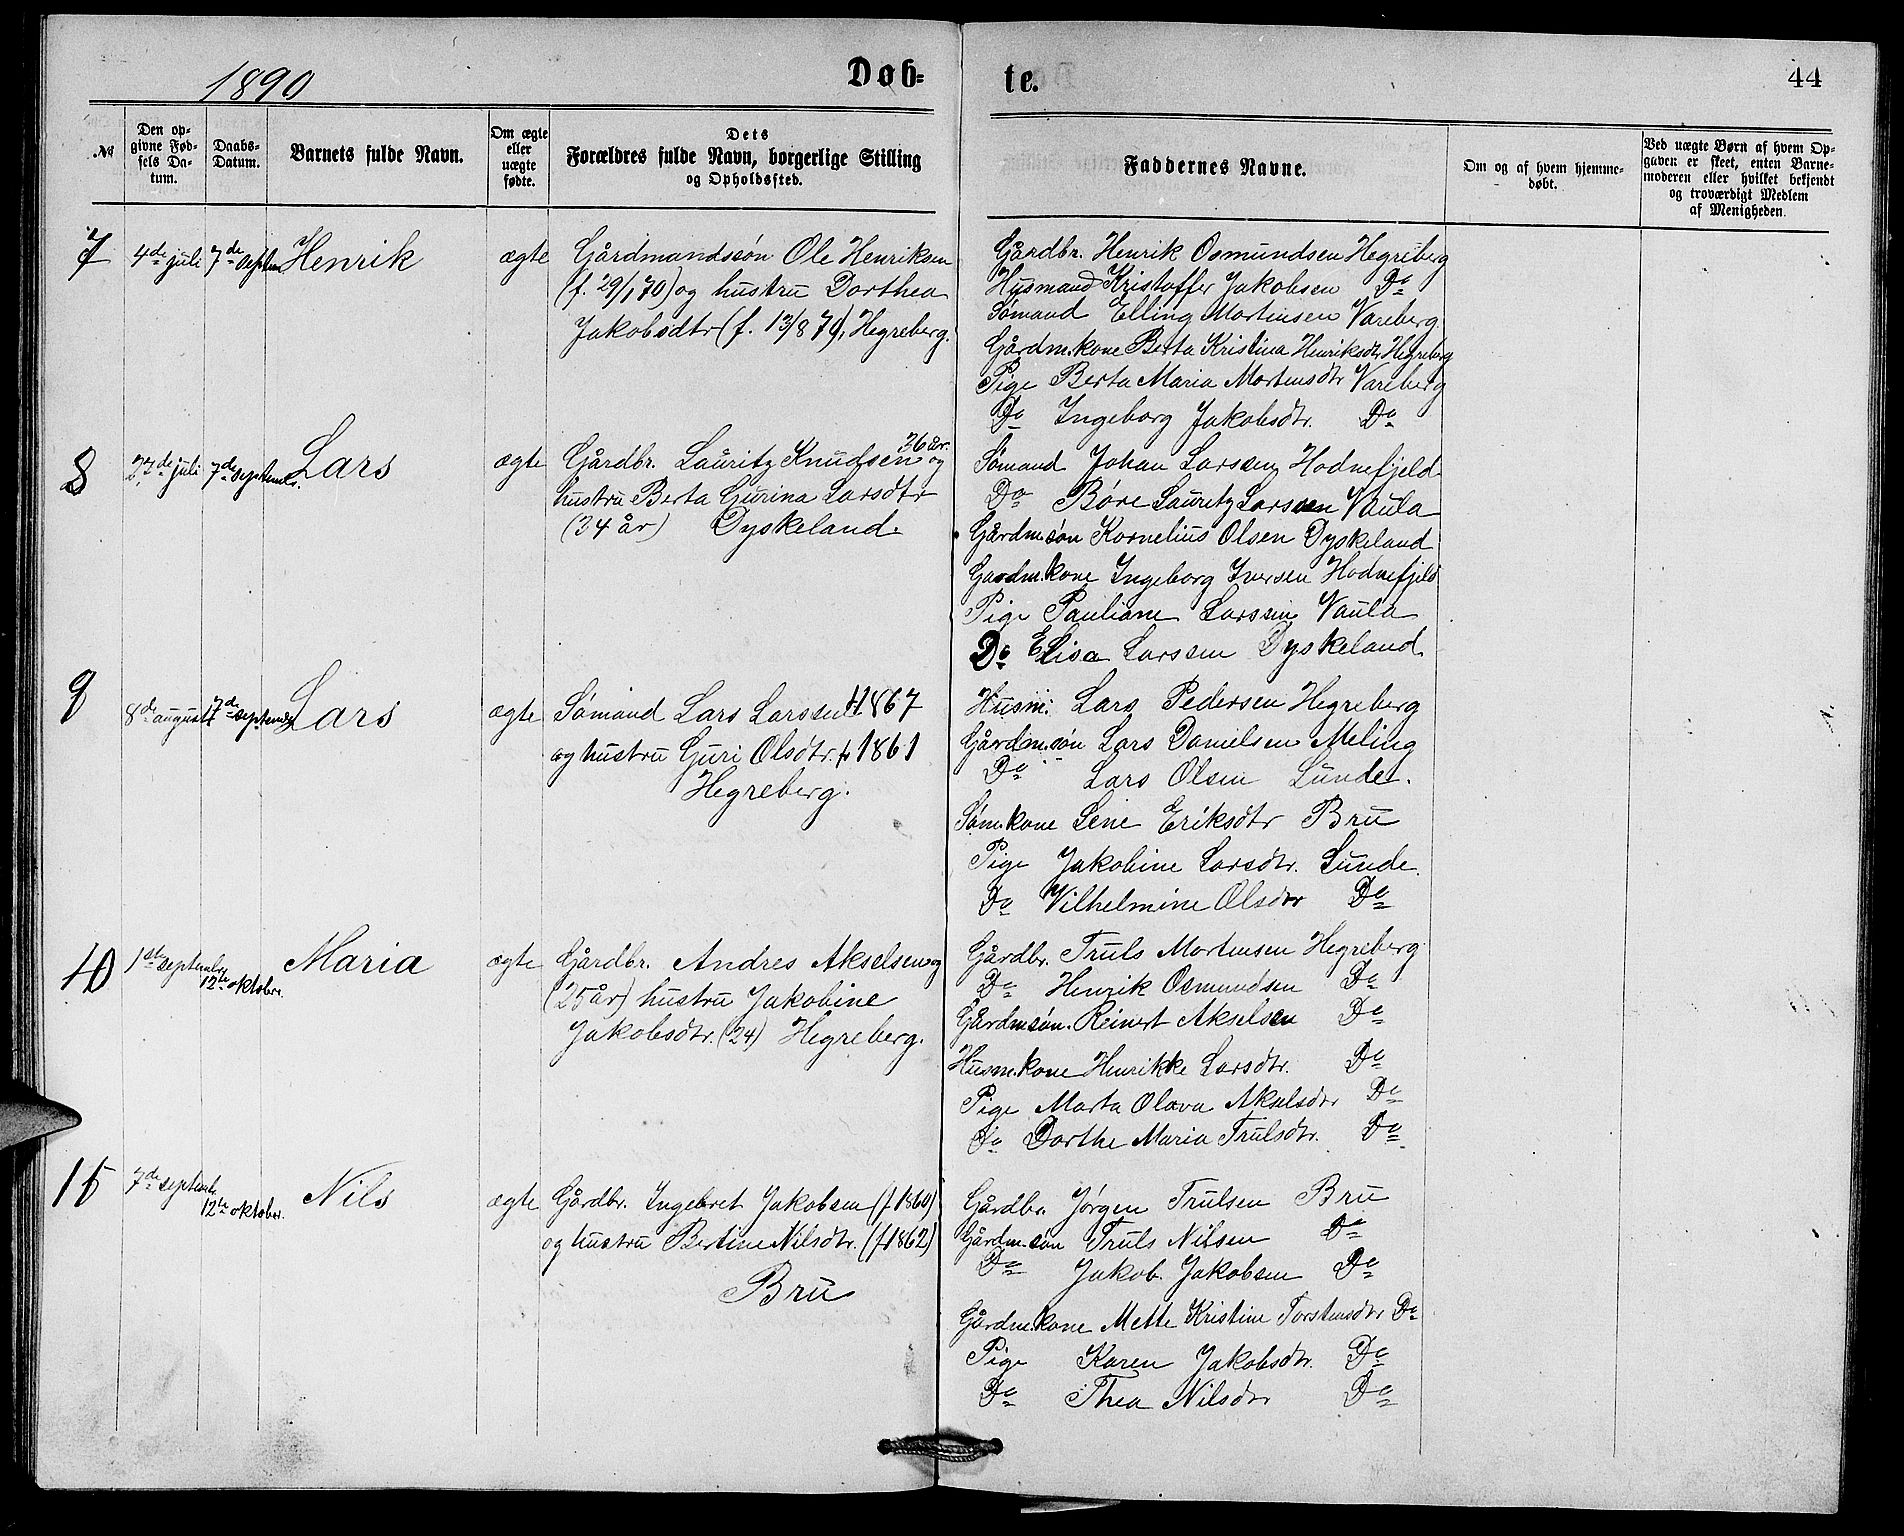 1890
Døb=
te.
44
№
Den op-
givne Fød-
sels Da-
tum.
Daabs-
Datum.
Barnets fulde Navn.
Om ægte
eller
uægte
fødte.
Dets
Forældres fulde Navn, borgerlige Stilling
og Opholdssted.
Faddernes Navne.
Om og af hvem hjemme-
døbt.
Ved uægte Børn af hvem Op-
gaven er skeet, enten Barne-
moderen eller hvilket bekjendt
og troværdigt Medlem
af Menigheden.
7
4de juli
7de septem
Henrik
ægte
Gårdmandssøn Ole Henriksen
(f. 29/1 70) og hustru Dorthea
Jakobsdtr (f. 13/8 70), Hegreberg.
Gårdbr. Henrik Osmundsen Hegreberg
Husmand Kristoffer Jakobsen Do
Sømand Elling Mortensen Vareberg
Gårdm.kone Berta Kristina Henriksdtr Hegreberg
Pige Berta Maria Mortensdtr Vareberg
Do Ingeborg Jakobsdtr. Do
8
27de juli
7de septemb.
Lars
ægte
Gårdbr. Lauritz Knudsen 36 år. og
hustru Berta Gurina Larsdtr
(34 år) Dyskeland.
Sømand Johan Larssen Hodnefjeld
Do Båre Lauritz Larssen Vaula
Gårdm.søn Kornelius Olsen Dyskeland
Gardm.kone Ingeborg Iversen Hodnefjeld
Pige Pauliane Larssen Vaula
Do Elisa Larssen Dyskeland
9
8de august
7de septemb
Lars
ægte
Sømand Lars Larssen f. 1867
og hustru Guri Olsdtr. f. 1861
Hegreberg.
Husm. Lars Pedersen Hegreberg
Gårdm.søn Lars Danielsen Meling
Do Lars Olsen Lunde.
Søm.kone Lene Eriksdtr Bru
Pige Jakobine Larsdtr. Lunde.
Do Vilhelmine Olsdtr Do
10
1ste septembr
12te oktobr.
Maria
ægte
Gårdbr. Andres Akselsen og
(25 år) hustru Jakobine
Jakobsdtr. (24) Hegreberg.
Gårdbr. Truls Mortensen Hegreberg
Do Henrik Osmundsen Do
Gårdmsøn. Reinert Akselsen Do
Husm.kone Henrikke Larsdtr. Do
Pige Marta Olava Akselsdtr Do
Do Dorthe Maria Trulsdtr. Do
7de septembr.
12te oktober.
Nils
ægte
Gårdbr. Ingebret Jakobsen (f. 1860)
og hustru Bertine Nilsdtr. (f. 1862)
Bru
Gårdbr. Jørgen Trulsen Bru
Gårdm.søn Truls Nilsen Do
Do Jakob Jakobsen Do
Gårdm.kone Mette Kristine Torstensdtr Do
Pige Karen Jakobsdtr. Do
Do Thea Nilsdtr Do